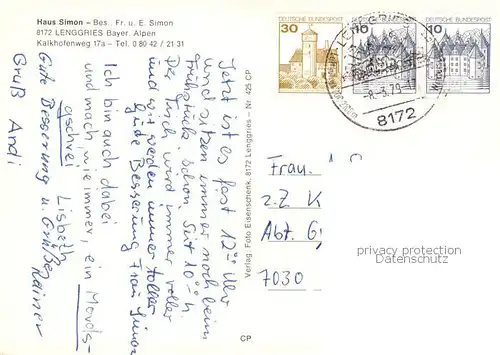 Haus Simon – Bes. Fr. u. E. Simon
8172 LENGGRIES Bayer. Alpen
Kalkhofenweg 17a – Tel. 0 80 42 / 21 31
Jetzt ist es fast 12°° Uhr
und sitzen immer noch beim
Frühstück. Schon seit 10°° h.
Der Tisch wird immer voller
und wir werden immer toller
Gute Besserung Frau Simon
Ich bin auch dabei
und mach, wie immer, ein Mords-
gschrei
Lisbeth
Gute Besserung u. Grüße
Rainer
Gruß Andi
Verlag: Foto Eisenschenk, 8172 Lenggries – Nr. 425 CP
CP
DEUTSCHE BUNDESPOST
30
DEUTSCHE BUNDESPOST
10
DEUTSCHE BUNDESPOST
10
LENGGRIES
-8.3.79
8172
Frau
z.Z. K
Abt. G
7030
privacy protection
Datenschutz